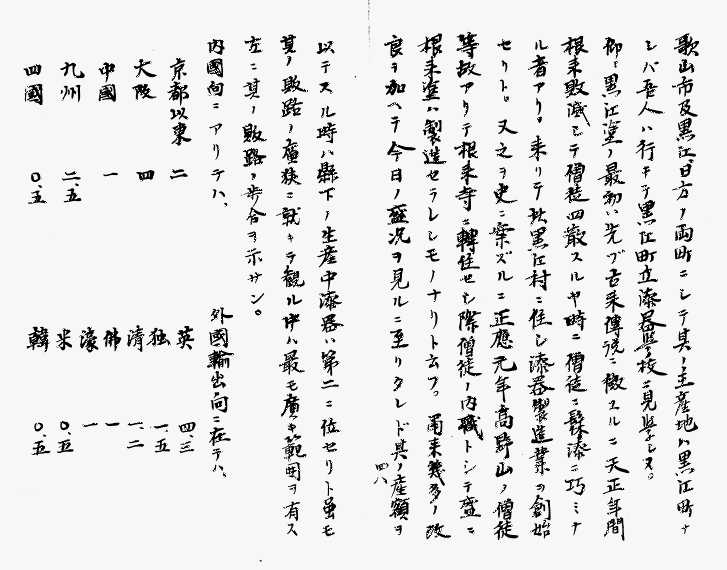 歌山市及黒江、日方ノ両町ニシテ其ノ主産地ハ黒江町ナ
レバ吾人ハ行キテ黒江町立漆器學校ニ見學シヌ。
抑々黒江塗ノ最初ハ先ヅ古来傳説ニ徴スルニ天正年間
根来敗滅シテ僧徒四散スルヤ時ニ僧徒ニ髹漆ニ巧ミナ
ル者アリ。来リテ此黒江村ニ住シ漆器製造業ヲ創始
セリト。又之ヲ史ニ案ズルニ正應元年高野山ノ僧徒
等故アリテ根来寺ニ轉住セシ際僧徒ノ内職トシテ盛ニ
根来塗ハ製造セラレシモノナリト云フ。爾来幾多ノ改
良ヲ加ヘテ今日ノ盛況ヲ見ルニ至リタレド其ノ産額ヲ
四八
以テスル時ハ縣下ノ生産中漆器ハ第二ニ位セリト虽モ
其ノ販路ノ廣狭ニ就キテ観ル時ハ最モ廣キ範囲ヲ有ス
左ニ其ノ販路ノ歩合ヲ示サン。
内國向ニアリテハ、
京都以東 二
大阪 四
中國 一
九州 二.五
四國 〇.五
外國輸出向ニ在テハ、
英 四.三
独 一.五
清 一.二
佛 一
濠 一
米 〇.五
韓 〇.五